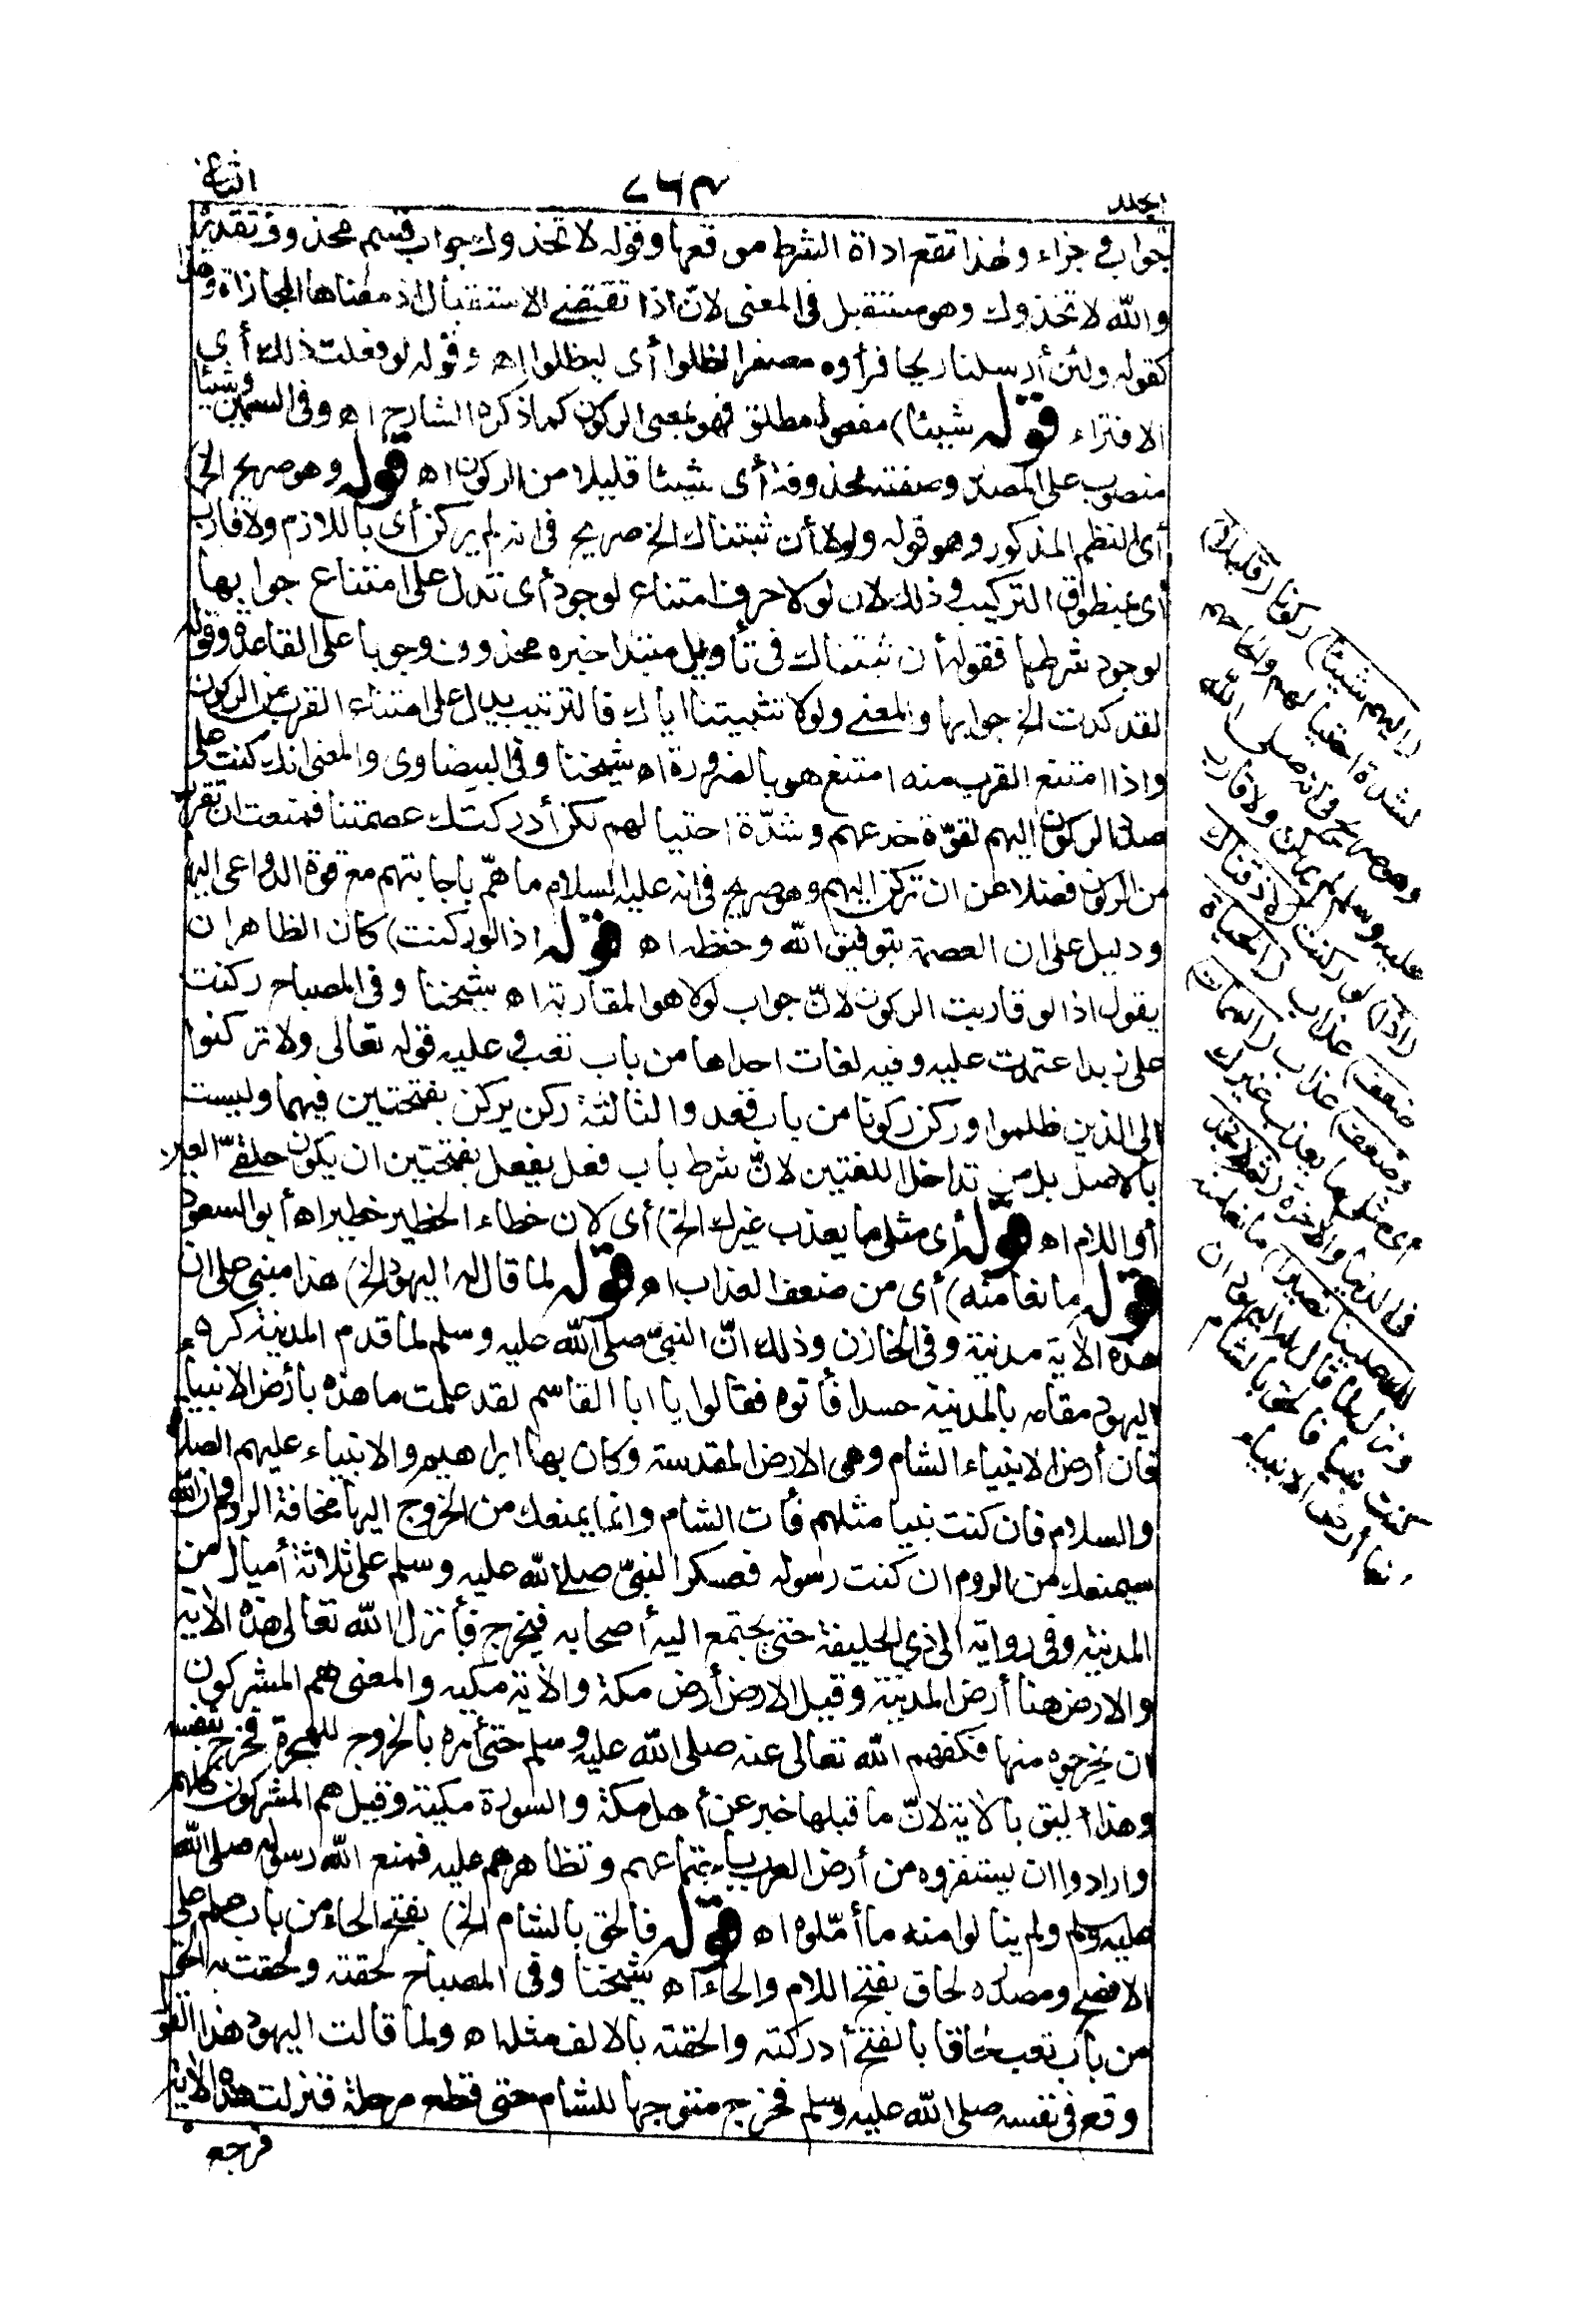 المجلد
٧٦٣
الثاني
جواب وجزاء ولهذا تقع اداة الشرط موقعها وقوله لا تخذوك جواب قسم محذوف تقديره
والله لا تخذوك وهو مستقبل في المعنى لانّ اذا تقتضى الاستقبال اذ معناها المجازاة وهذا
كقوله ولئن أرسلنا ريحا فرأوه مصفرا لظلوا أى ليظلوا اه وقوله لو فعلت ذلك أى
الافتراء قوله شيئا) مفعول مطلق فهو بمعنى الركون كما ذكره الشارح اه وفى السمين وشيئا
منصوب على المصدر وصفته محذوفة أى شيئا قليلا من الركون اه قوله وهو صريح الخ)
أى النظم المذكور وهو قوله ولولا أن ثبتناك الخ صريح فى انه لم يركن أى باللازم ولا قارب
أى بمنطوق التركيب وذلك لان لولا حرف امتناع لوجود أى تدل على امتناع جوابها
لوجود شرطها فقوله أن ثبتناك فى تأويل مبتدا خبره محذوف وجوبا على القاعدة وقوله
لقد كدت الخ جوابها والمعنى ولولا تثبيتنا اياك فالترتيب يدل على امتناء القرب من الركون
واذا امتنع القرب منه امتنع هو بالضرورة اه شيخنا وفى البيضاوى والمعنى انك كنت على
صدد الركون اليهم لقوّة خدعهم وشدّة احتيالهم لكن أدركتك عصمتنا فمنعت ان تقرب
من الركون فضلا عن ان تركن اليهم وهو صريح فى انه عليه السلام ما همّ باجابتهم مع قوة الدواعى اليها
ودليل على ان العصمة بتوفيق الله وحفظه اه قوله اذا لو ركنت) كان الظاهر ان
يقول اذا لو قاربت الركون لانّ جواب لولا هو المقاربة اه شيخنا وفى المصباح ركنت
على زيد اعتمدت عليه وفيه لغات احداها من باب تعب وعليه قوله تعالى ولا تركنوا
الى الذين ظلموا وركن ركونا من باب قعد والثالثة ركن يركن بفتحتين فيهما وليست
بالاصل بل من تداخل اللغتين لانّ شرط باب فعل يفعل بفتحتين ان يكون حلقىّ العين
أو اللام اه قوله أى مثلى ما يعذب غيرك الخ) أى لان خطاء الخطير خطير اه أبو السعود
قوله مانعا منه) أى من ضعف العذاب اه قوله لما قال له اليهود الخ) هذا مبنى على ان
هذه الاية مدنية وفى الخازن وذلك انّ النبىّ صلى الله عليه وسلم لما قدم المدينة كره
اليهود مقامه بالمدينة حسدا فأتوه فقالوا يا ابا القاسم لقد علمت ما هذه بأرض الانبياء
فان أرض الانبياء الشام وهى الارض المقدسة وكان بها ابراهيم والانبياء عليهم الصلاة
والسلام فان كنت نبيا مثلهم فأت الشام وانما يمنعك من الخروج اليها مخافة الروم وان الله
سيمنعك من الروم ان كنت رسوله فعسكر النبىّ صلى الله عليه وسلم على ثلاثة أميال من
المدينة وفى رواية الى ذى الحليفة حتى يجتمع اليه أصحابه فيخرج فأنزل الله تعالى هذه الاية
والارض هنا أرض المدينة وقيل الارض أرض مكة والاية مكية والمعنى هم المشركون
ان يخرجوه منها فكفهم الله تعالى عنه صلى الله عليه وسلم حتى أمره بالخروج للهجرة فخرج بنفسه
وهذا أليق بالاية لانّ ما قبلها خبر عن أهل مكة والسورة مكية وقيل هم المشركون كلهم
وارادوا ان يستفزوه من أرض العرب باجتماعهم وتظاهرهم عليه فمنع الله رسوله صلى الله
عليه وسلم ولم ينالوا منه ما أمّلوه اه قوله فالحق بالشام الخ) بفتح الحاء من باب علم على
الافصح ومصدره لحاق بفتح اللام والحاء اه شيخنا وفى المصباح لحقته ولحقت به الحق
من باب تعب لحاقا بالفتح أدركته والحقته بالالف مثله اه ولما قالت اليهود هذا القول
وقع فى نفسه صلى الله عليه وسلم فخرج متوجها للشام حتى قطع مرحلة فنزلت هذه الاية
فرجع
(اليهم شيئا) ركونا (قليلا)
لشدة احتيالهم والحاحهم
وهو صريح فى انه صلى الله
عليه وسلم لم يركن ولا قارب
(اذا) لو ركنت (لاذقناك
ضعف) عذاب (الحياة
وضعف) عذاب (الممات)
أى مثلى ما يعذب غيرك
فى الدنيا والاخرة (ثم لا تجد
لك علينا نصيرا) مانعا منه
ونزل لما قال له اليهود ان
كنت نبيا فالحق بالشام
فانها أرض الانبياء